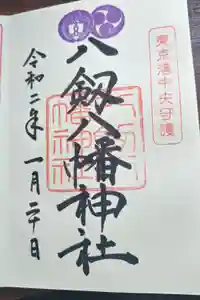 東京湾中央守護
八剱八幡神社
令和二年一月二十日